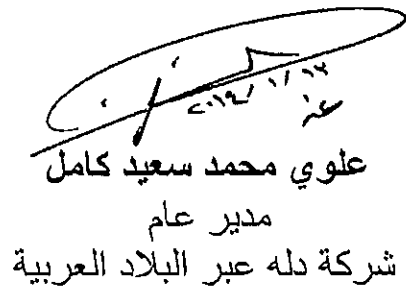 عنه
علوي محمد سعيد كامل
مدير عام
شركة دله عبر البلاد العربية